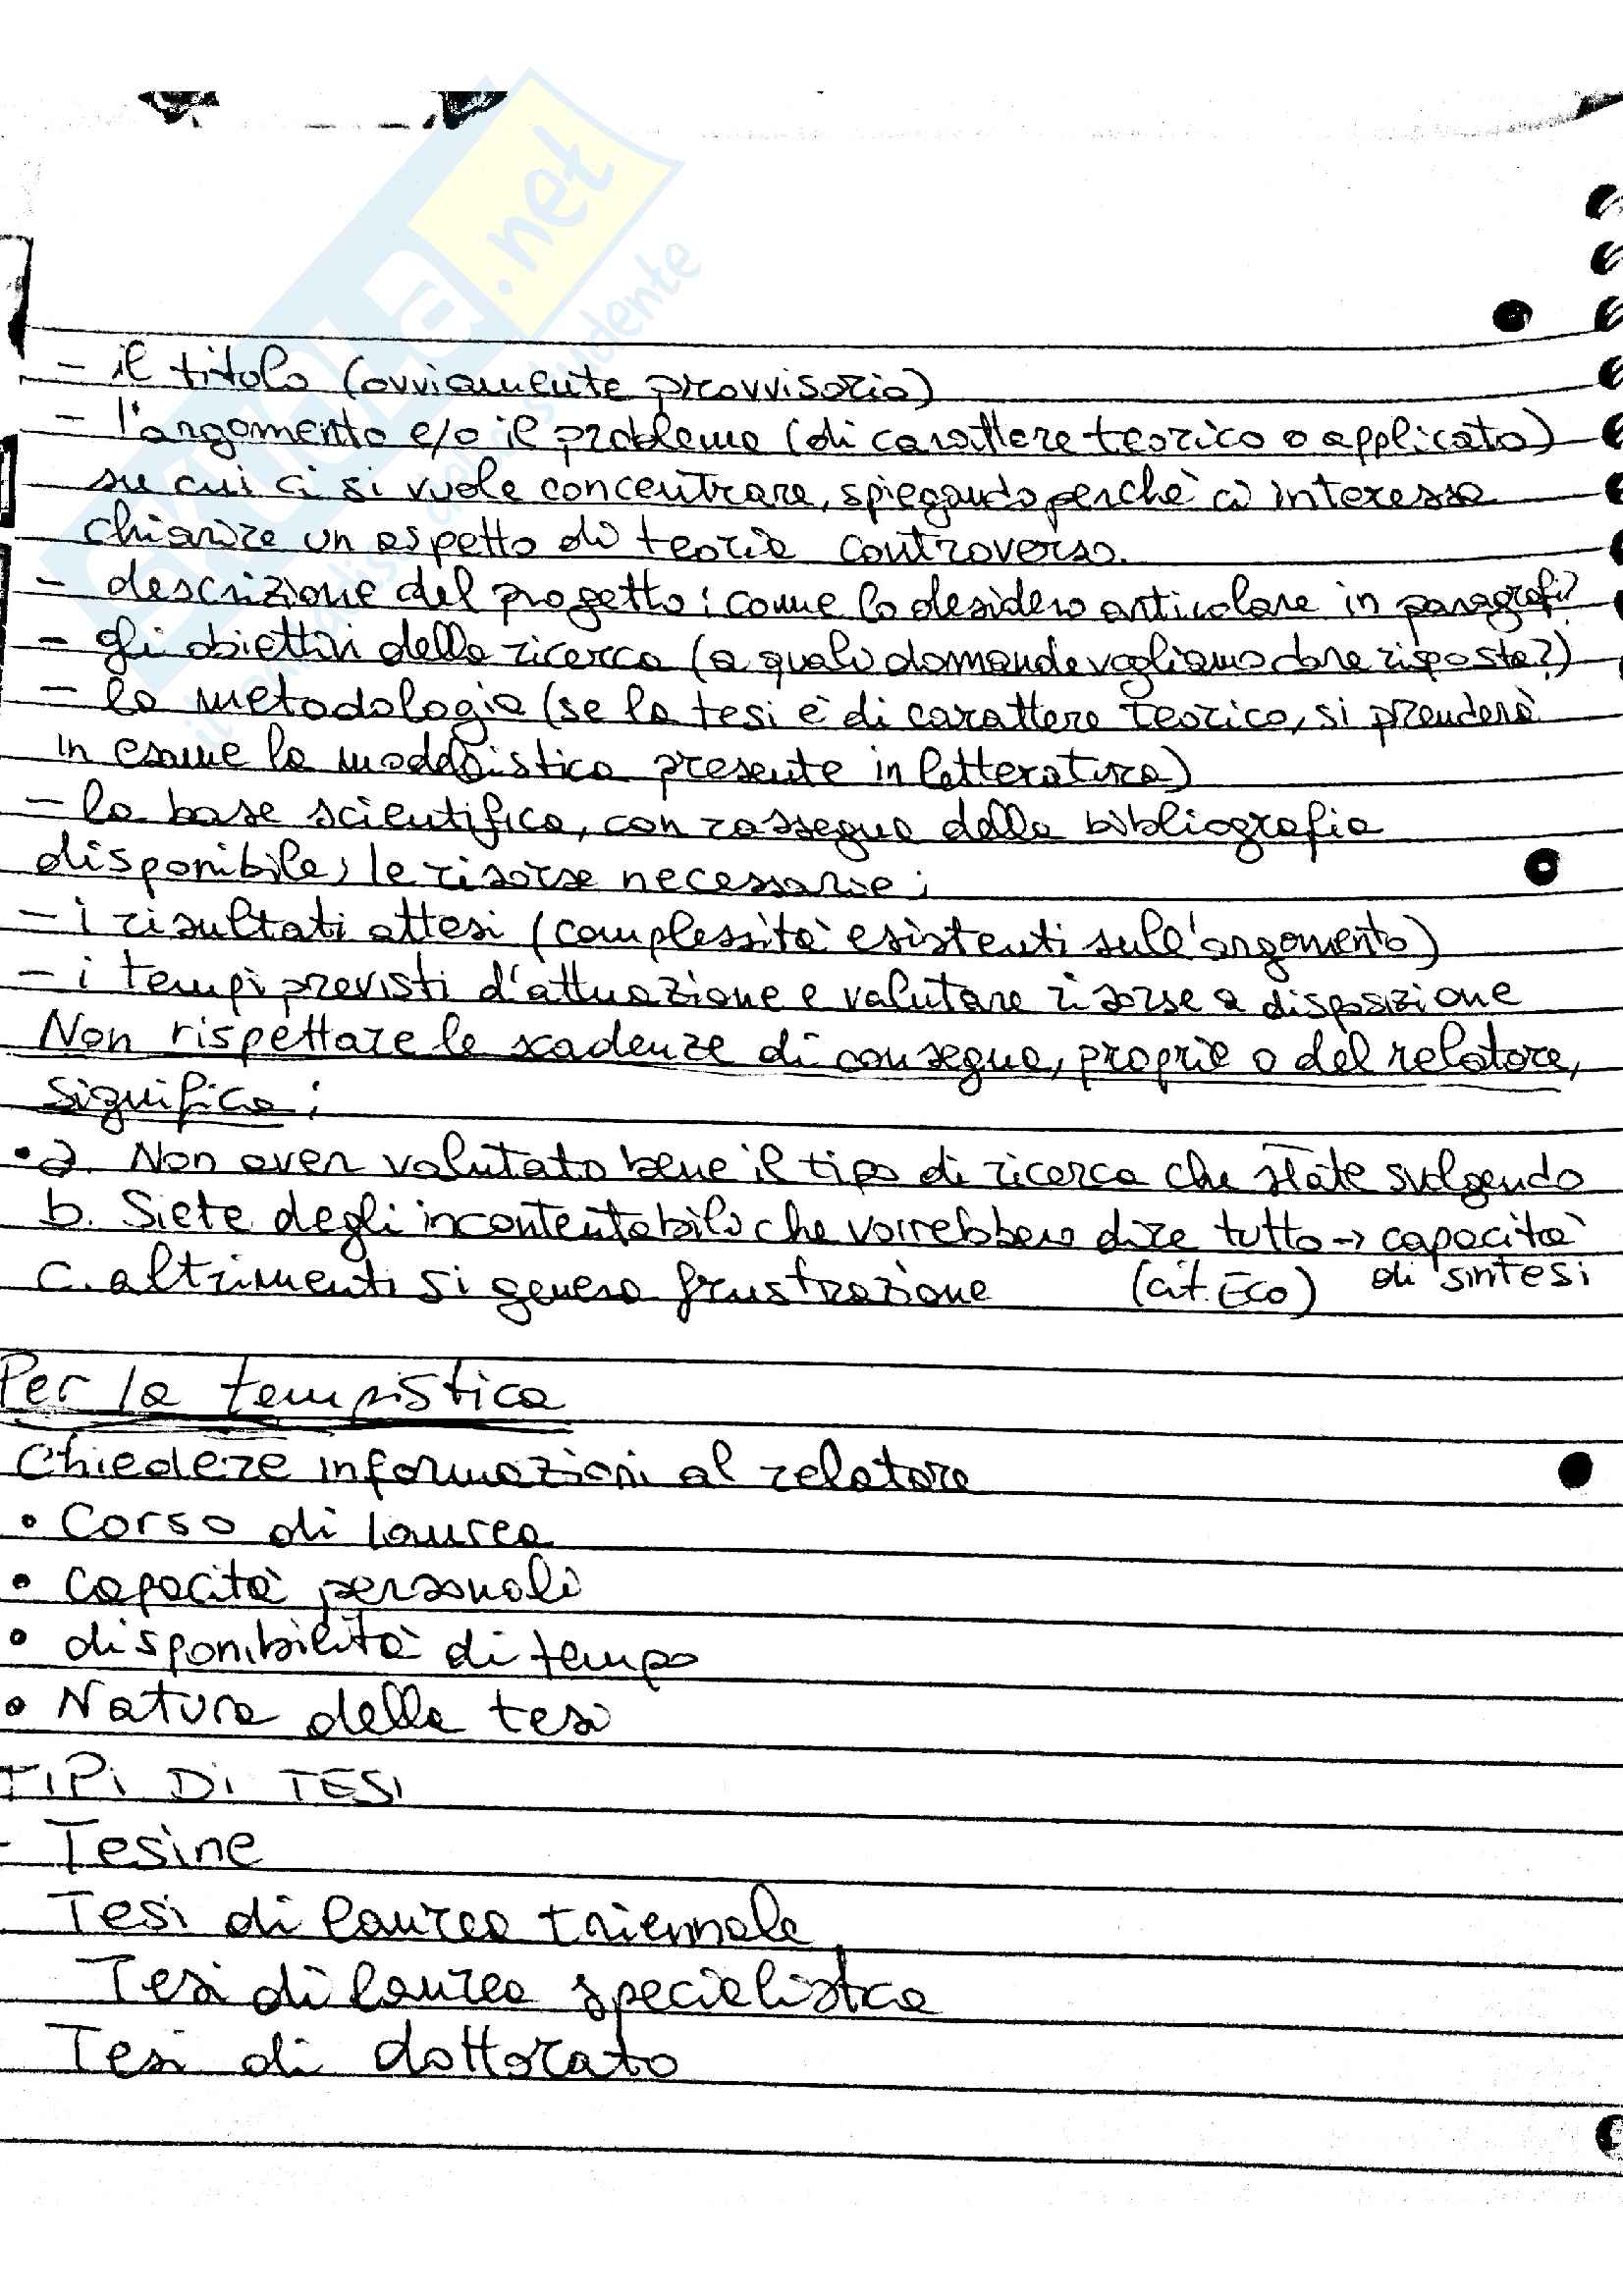 - il titolo (ovviamente provvisorio)
- l'argomento e/o il problema (di carattere teorico o applicato)
su cui ci si vuole concentrare, spiegando perchè ci interessa
chiarire un aspetto di teoria controverso.
- descrizione del progetto: come lo desidero articolare in paragrafi?
- gli obiettivi della ricerca (a quali domande vogliamo dare risposta?)
- la metodologia (se la tesi è di carattere teorico, si prenderà
in esame la modellistica presente in letteratura)
- la base scientifica, con rassegna della bibliografia
disponibile; le risorse necessarie;
- i risultati attesi (complessità esistenti sull'argomento)
- i tempi previsti d'attuazione e valutare risorse a disposizione
Non rispettare le scadenze di consegna, proprie o del relatore,
significa:
• a. Non aver valutato bene il tipo di ricerca che state svolgendo
b. Siete degli incontentabili che vorrebbero dire tutto → capacità
di sintesi
c. altrimenti si genera frustrazione (cit. Eco)
Per la tempistica
Chiedere informazioni al relatore
• Corso di laurea
• capacità personali
• disponibilità di tempo
• Natura della tesi
TIPI DI TESI
- Tesine
Tesi di laurea triennale
Tesi di laurea specialistica
Tesi di dottorato
skuola.net